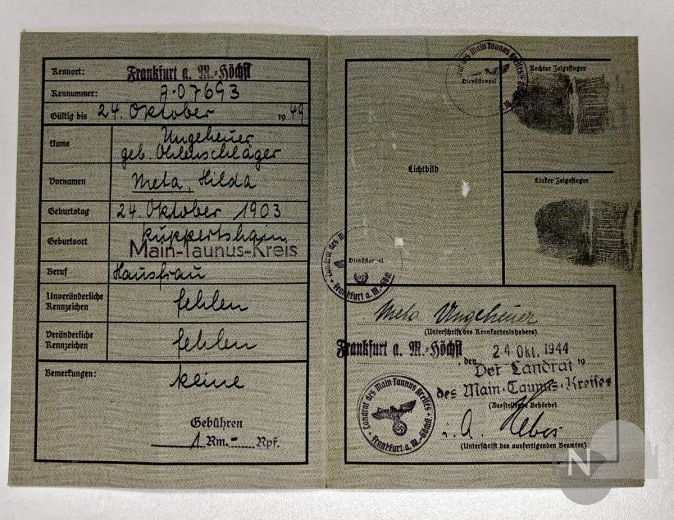 Kennort: Frankfurt a. M.-Höchst
Kennummer: A·07693
Gültig bis 24. Oktober 1949
Name Ungeheuer
geb. Ohlenschläger
Vornamen Meta, Hilda
Geburtstag 24. Oktober 1903
Geburtsort Ruppertshain
Main-Taunus-Kreis
Beruf Hausfrau
Unveränderliche Kennzeichen fehlen
Veränderliche Kennzeichen fehlen
Bemerkungen: keine
Gebühren
1 Rm.- Rpf.
Dienststempel
Rechter Zeigefinger
Lichtbild
Linker Zeigefinger
Dienststempel
Meta Ungeheuer
(Unterschrift des Kennkarteninhabers)
Frankfurt a. M.-Höchst, den 24 Okt. 1944 19
Der Landrat
des Main-Taunus-Kreises
(Ausstellende Behörde)
Landrat des Main Taunus Kreises
Frankfurt a. M. Höchst
i. A.
(Unterschrift des ausfertigenden Beamten)
N